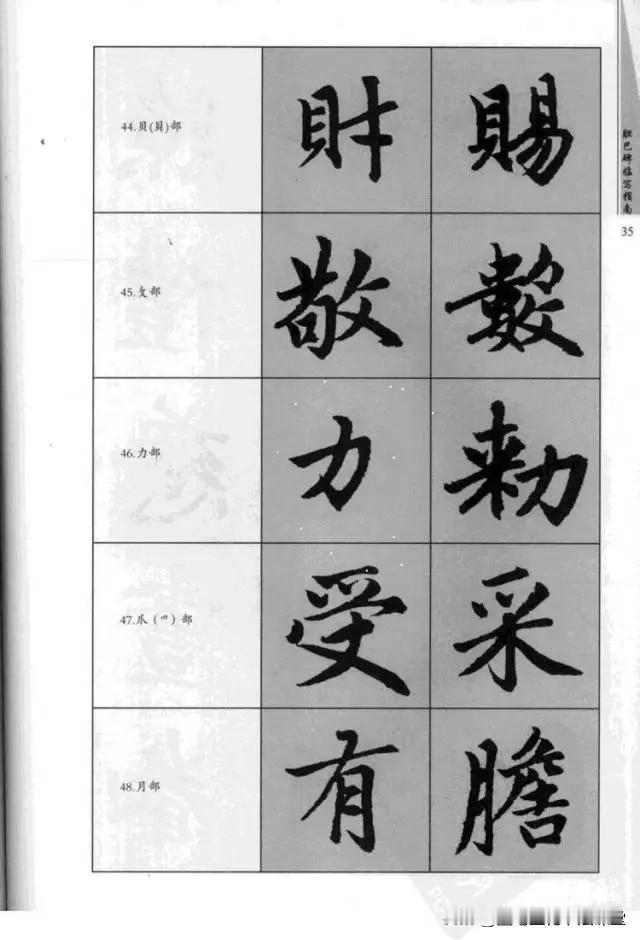 44.貝(貝)部
財 賜
45.攵部
敬 數
46.力部
力 勑
47.爪(爫)部
受 采
48.月部
有 膽
胆巴碑临写指南
35